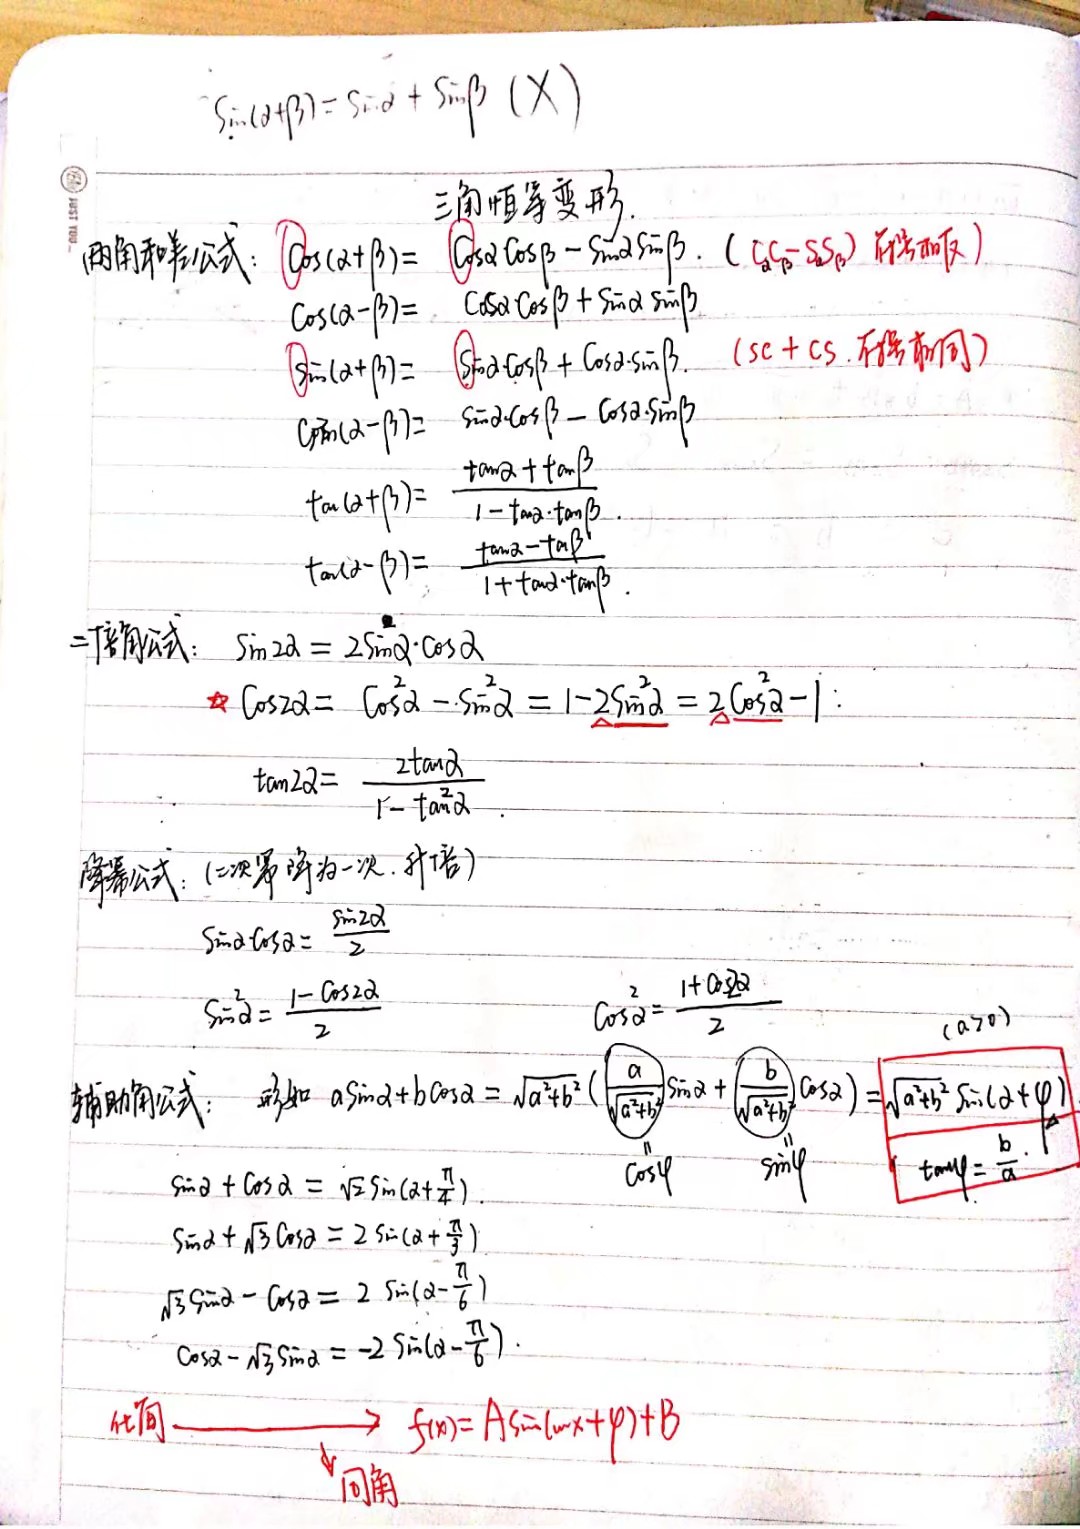 Sin(α+β)=Sinα+Sinβ (X)
JUST YOU...
三角恒等变形.
两角和差公式: Cos(α+β)= Cosα Cosβ - Sinα Sinβ. (CαCβ-SαSβ) 符号相反)
Cos(α-β)= Cosα·Cosβ + Sinα sinβ
Sin(α+β)= Sinα·Cosβ + Cosα·sinβ. (SC + CS. 符号相同)
Sin(α-β)= Sinα·Cosβ - Cosα·Sinβ
tan(α+β)= (tanα + tanβ)/(1-tanα·tanβ).
tan(α-β)= (tanα-tanβ)/(1+tanα·tanβ).
二倍角公式: Sin2α = 2Sinα·Cosα
☆ Cos2α = Cos²α - Sin²α = 1-2Sin²α = 2Cos²α-1:
tan2α= 2tanα/(1-tan²α).
降幂公式: (二次幂降为一次. 升倍)
Sinα·Cosα= sin2α/2
Sin²α= (1-Cos2α)/2 Cos²α= (1+Cos2α)/2
(a>0)
辅助角公式: 形如 aSinα+bCosα = √a²+b² (a/√a²+b² Sinα + b/√a²+b² Cosα) = √a²+b² Sin(α+φ)
= Cosφ = sinφ tanφ= b/a.
Sinα + Cosα = √2 Sin(α+π/4).
Sinα + √3 Cosα = 2 Sin(α+π/3)
√3 Sinα - Cosα = 2 Sin(α-π/6)
Cosα-√3 Sinα = -2 Sin(α-π/6).
化简 → f(x)= ASin(ωx+φ)+B
↓ 同角